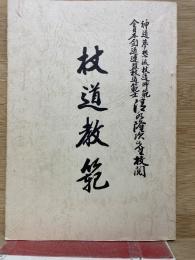 神道夢想流杖道師範
全日本剣道連盟杖道範士 清水隆次先生校閲
杖道教範